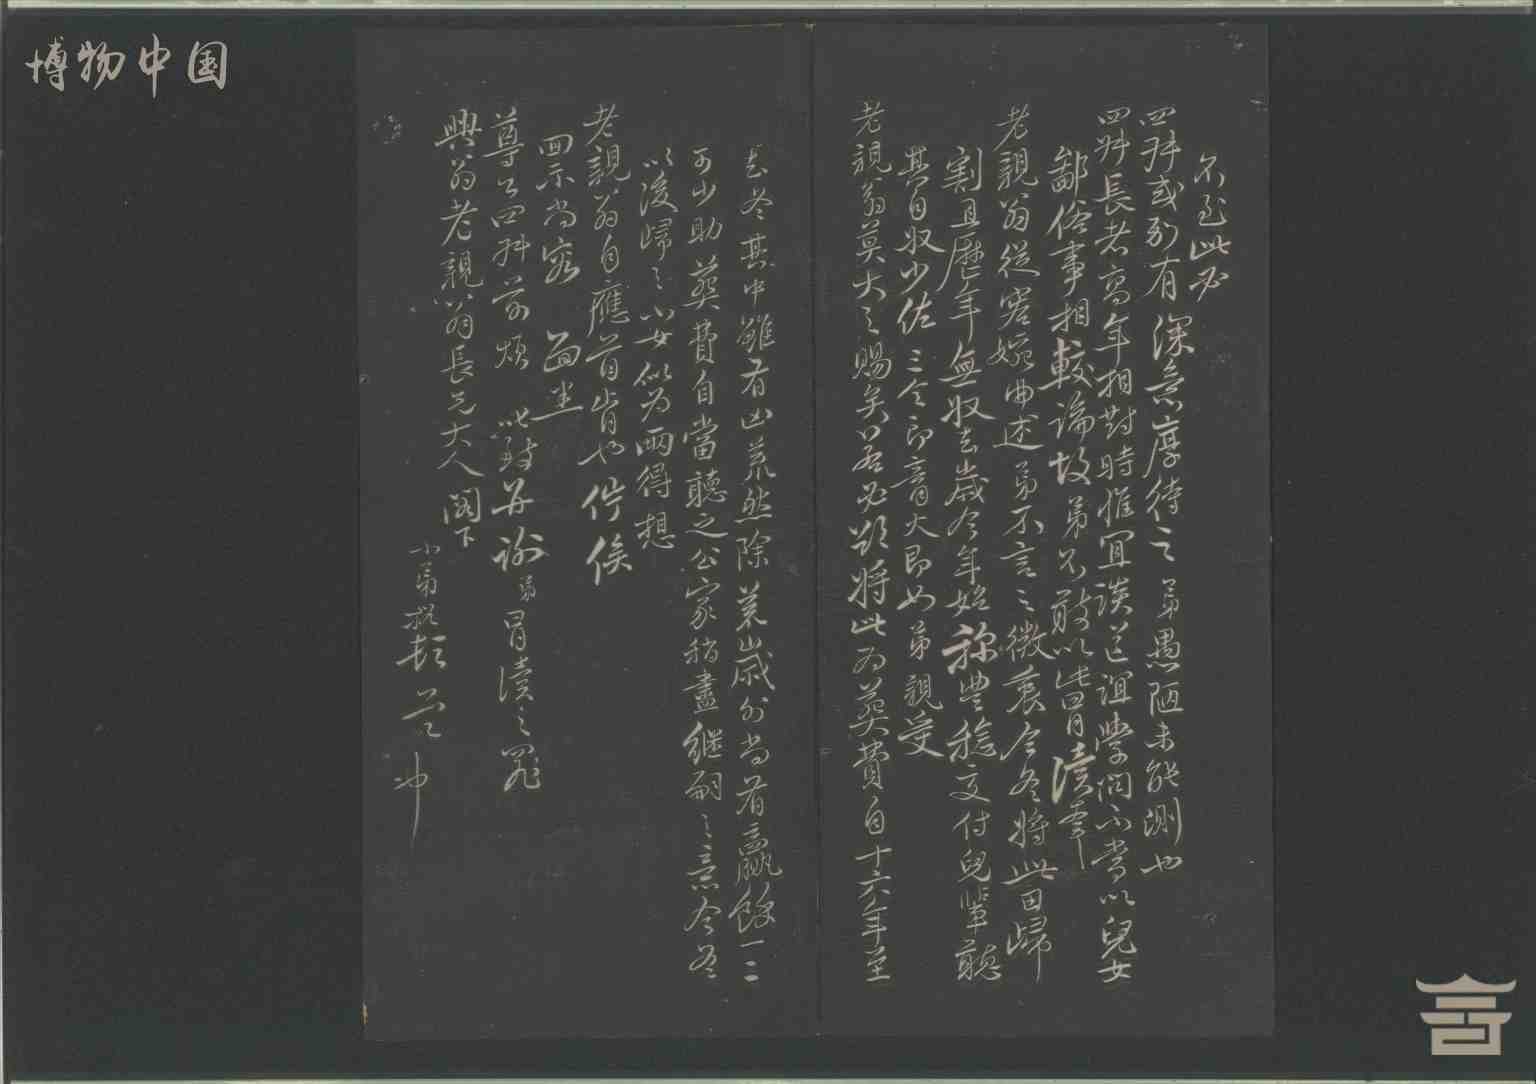 博物中国
不至此必
四拜或別有深意厚待之弟愚陋未能測也
四拜長者高年相對時惟宜談道誼學問不當以兒女
鄙俗事相較論故弟不敢以此冒瀆幸
老親翁從容婉曲述弟不言之微衷今冬將此田歸
割且歷年無收去歲今年始稱豐稔交付兒輩聽
其自收少佐三令郎膏火即如弟親受
老親翁莫大之賜矣若必欲將此為葬費自十六年至
去冬其中雖有凶荒然除荒歲外尚有贏餘一二
可少助葬費自當聽之公家稍盡繼嗣之意今冬
以後歸之小女似為兩得想
老親翁自應首肯也佇俟
回示尚容 面坐
尊公四拜前煩 此致并謝弟冒瀆之罪
興翁老親翁長兄大人 閣下
小弟 頓首 冲